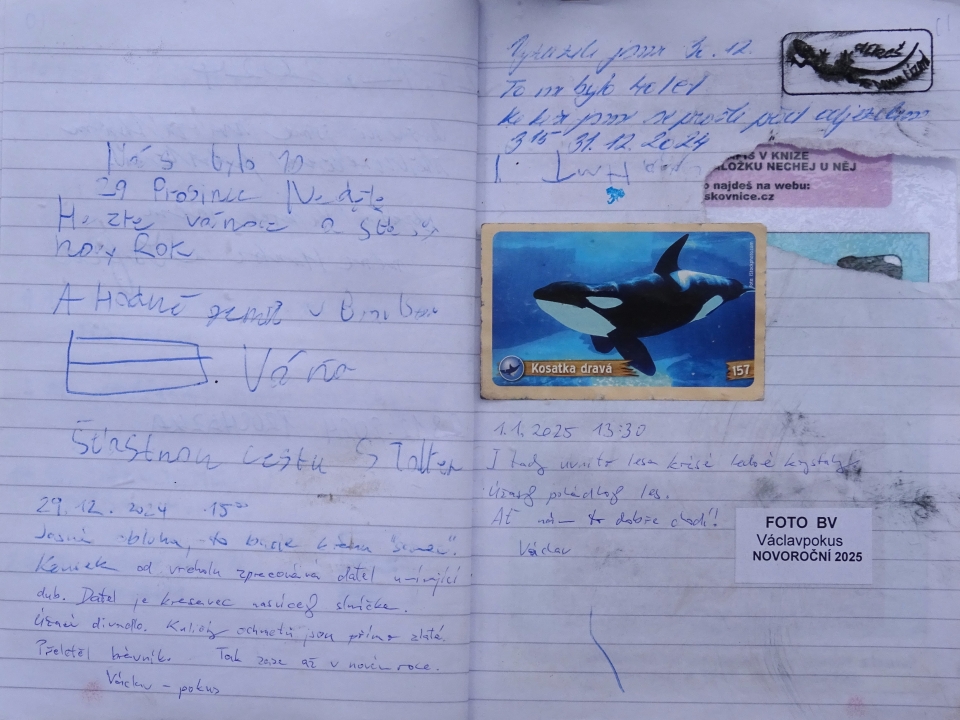 Nás bylo 10
29 Prosinec Neděle
Hezké vánoce a šťastný
nový Rok
A Hodně
Váňa
Šťastnou cestu S
29. 12. 2024 15⁰⁰
Jasná obloha, to bude krásný
Kousek od vrcholu zpracovává datel umírající
dub. Datel je krasavec nosící sluníčka.
Úžasné divadlo. ochmetů jsou přímo zlaté.
Přeletěl brávník. Tak zase až v novém roce.
Václav - pokus
Vyrazili jsme 30. 12.
To mi bylo 40 let
jsme se prošli před odjezdem
3¹⁵ 31. 12. 2024
V KNIZE
NECHEJ U NĚJ
o najdeš na webu:
skovnice.cz
Kosatka dravá
157
1. 1. 2025 13:30
I tady uvnitř lesa krásné ledové krystalky.
Úžasný pohádkový les.
Ať nám to dobře chodí!
Václav
FOTO BV
Václavpokus
NOVOROČNÍ 2025